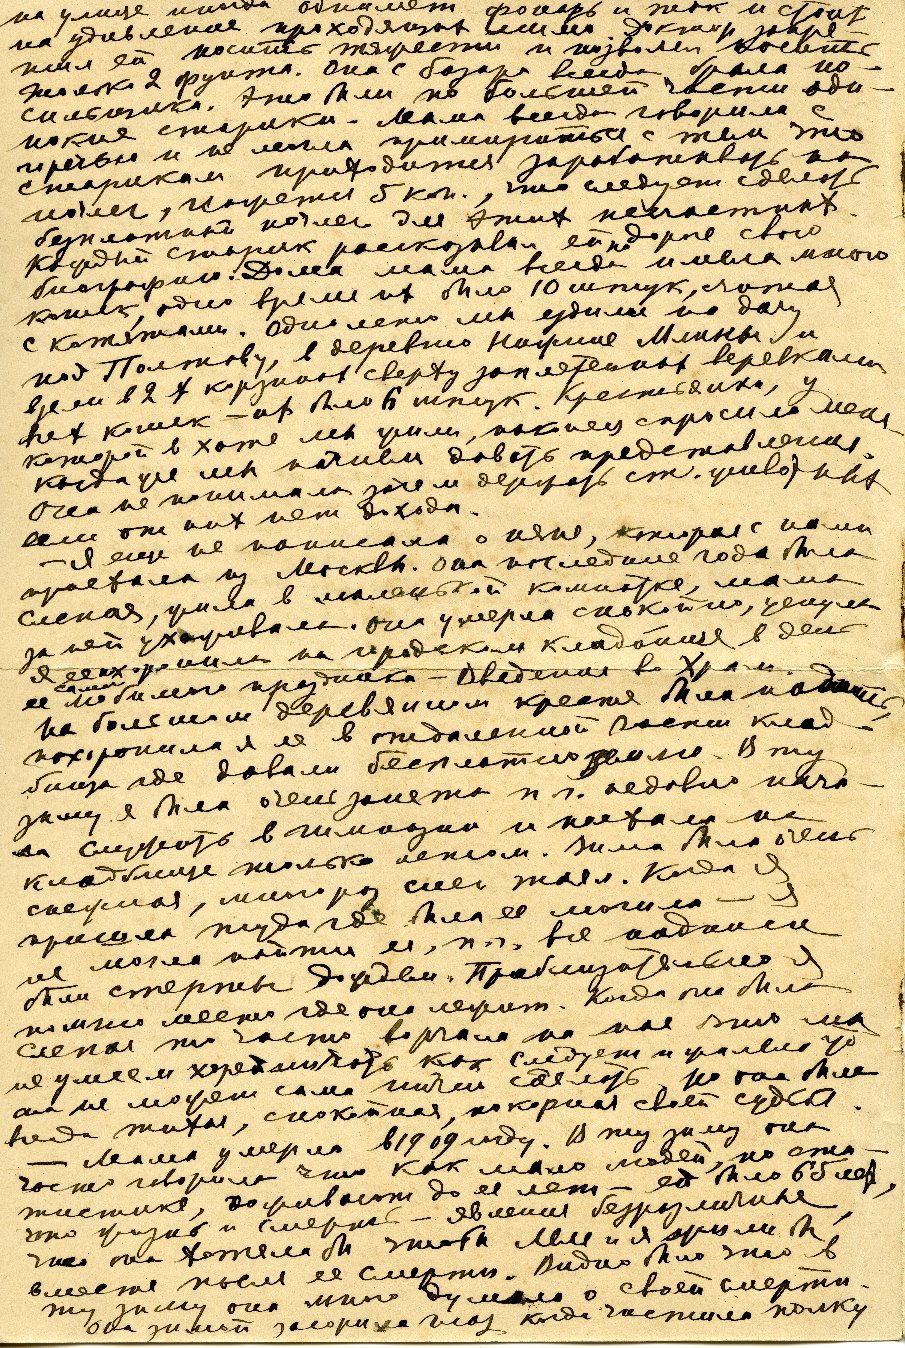 на улице иногда обнимет фонарь и так и стоит
на удивление проходящих мимо. Доктор запре-
тил ей носить тяжести и позволял носить
только 2 фунта. Она с базара всегда брала но-
сильщика. Это были по большей части оди-
нокие старики. Мама всегда говорила с
горечью и не могла примириться с тем что
старикам приходится зарабатывать на
ночлег, кажется 5 коп., что следует сделать
безплатный ночлег для этих несчастных.
Каждый старик рассказывал ей по дороге свою
биографию. Дома мама всегда имела много
кошек, одно время их было 10 штук, считая
с котятами. Одно лето мы ездили на дачу
под Полтаву, в деревню Нижние Млины и
взели в 2 х корзинах сверху заплетенных веревками
всех кошек – их было 6 штук. Крестьянка, у
которой в хате мы жили, наконец спросила меня
когда же мы начнем давать представления.
Она не понимала зачем держать ст. животных
если от них нет дохода.
– Я еще не написала о няне, которая с нами
приехала из Москвы. Она последние года была
слепая, жила в маленькой комнатке, мама
за ней ухаживала. Она умерла спокойно, уснула
я ее схоронила на городском кладбище в день
ее самого любимого праздника – Введения во Храм.
На большом деревянном кресте была надпись,
похоронила я ее в отдаленной части клад-
бища где давали бесплатно землю. В ту
зиму я была очень занята п.ч. недавно нача-
ла служить в гимназии и поехала на
кладбище только летом. Зима была очень
снежная, много раз снег таял. Когда я
пришла туда где была ее могила – я
не могла найти ее, п.ч. все надписи
были стерты дождем. Приблизительно я
помню место где она лежит. Когда она была
слепая то часто ворчала на нас что мы
не умеем хозяйничать как следует и жалела что
она не может сама ничего сделать, но она была
всегда тихая, спокойная, покорная своей судьбе.
– Мама умерла в 1909 году. В ту зиму она
часто говорила что как мало людей, по ста-
тистике, доживают до ее лет – ей было 65 лет,
что жизнь и смерть – явления безразличные,
что она хотела бы чтобы Мы и я жили бы
вместе после ее смерти. Видно было что в
ту зиму она много думала о своей смерти.
Она зимой засорила глаз когда чистила полку